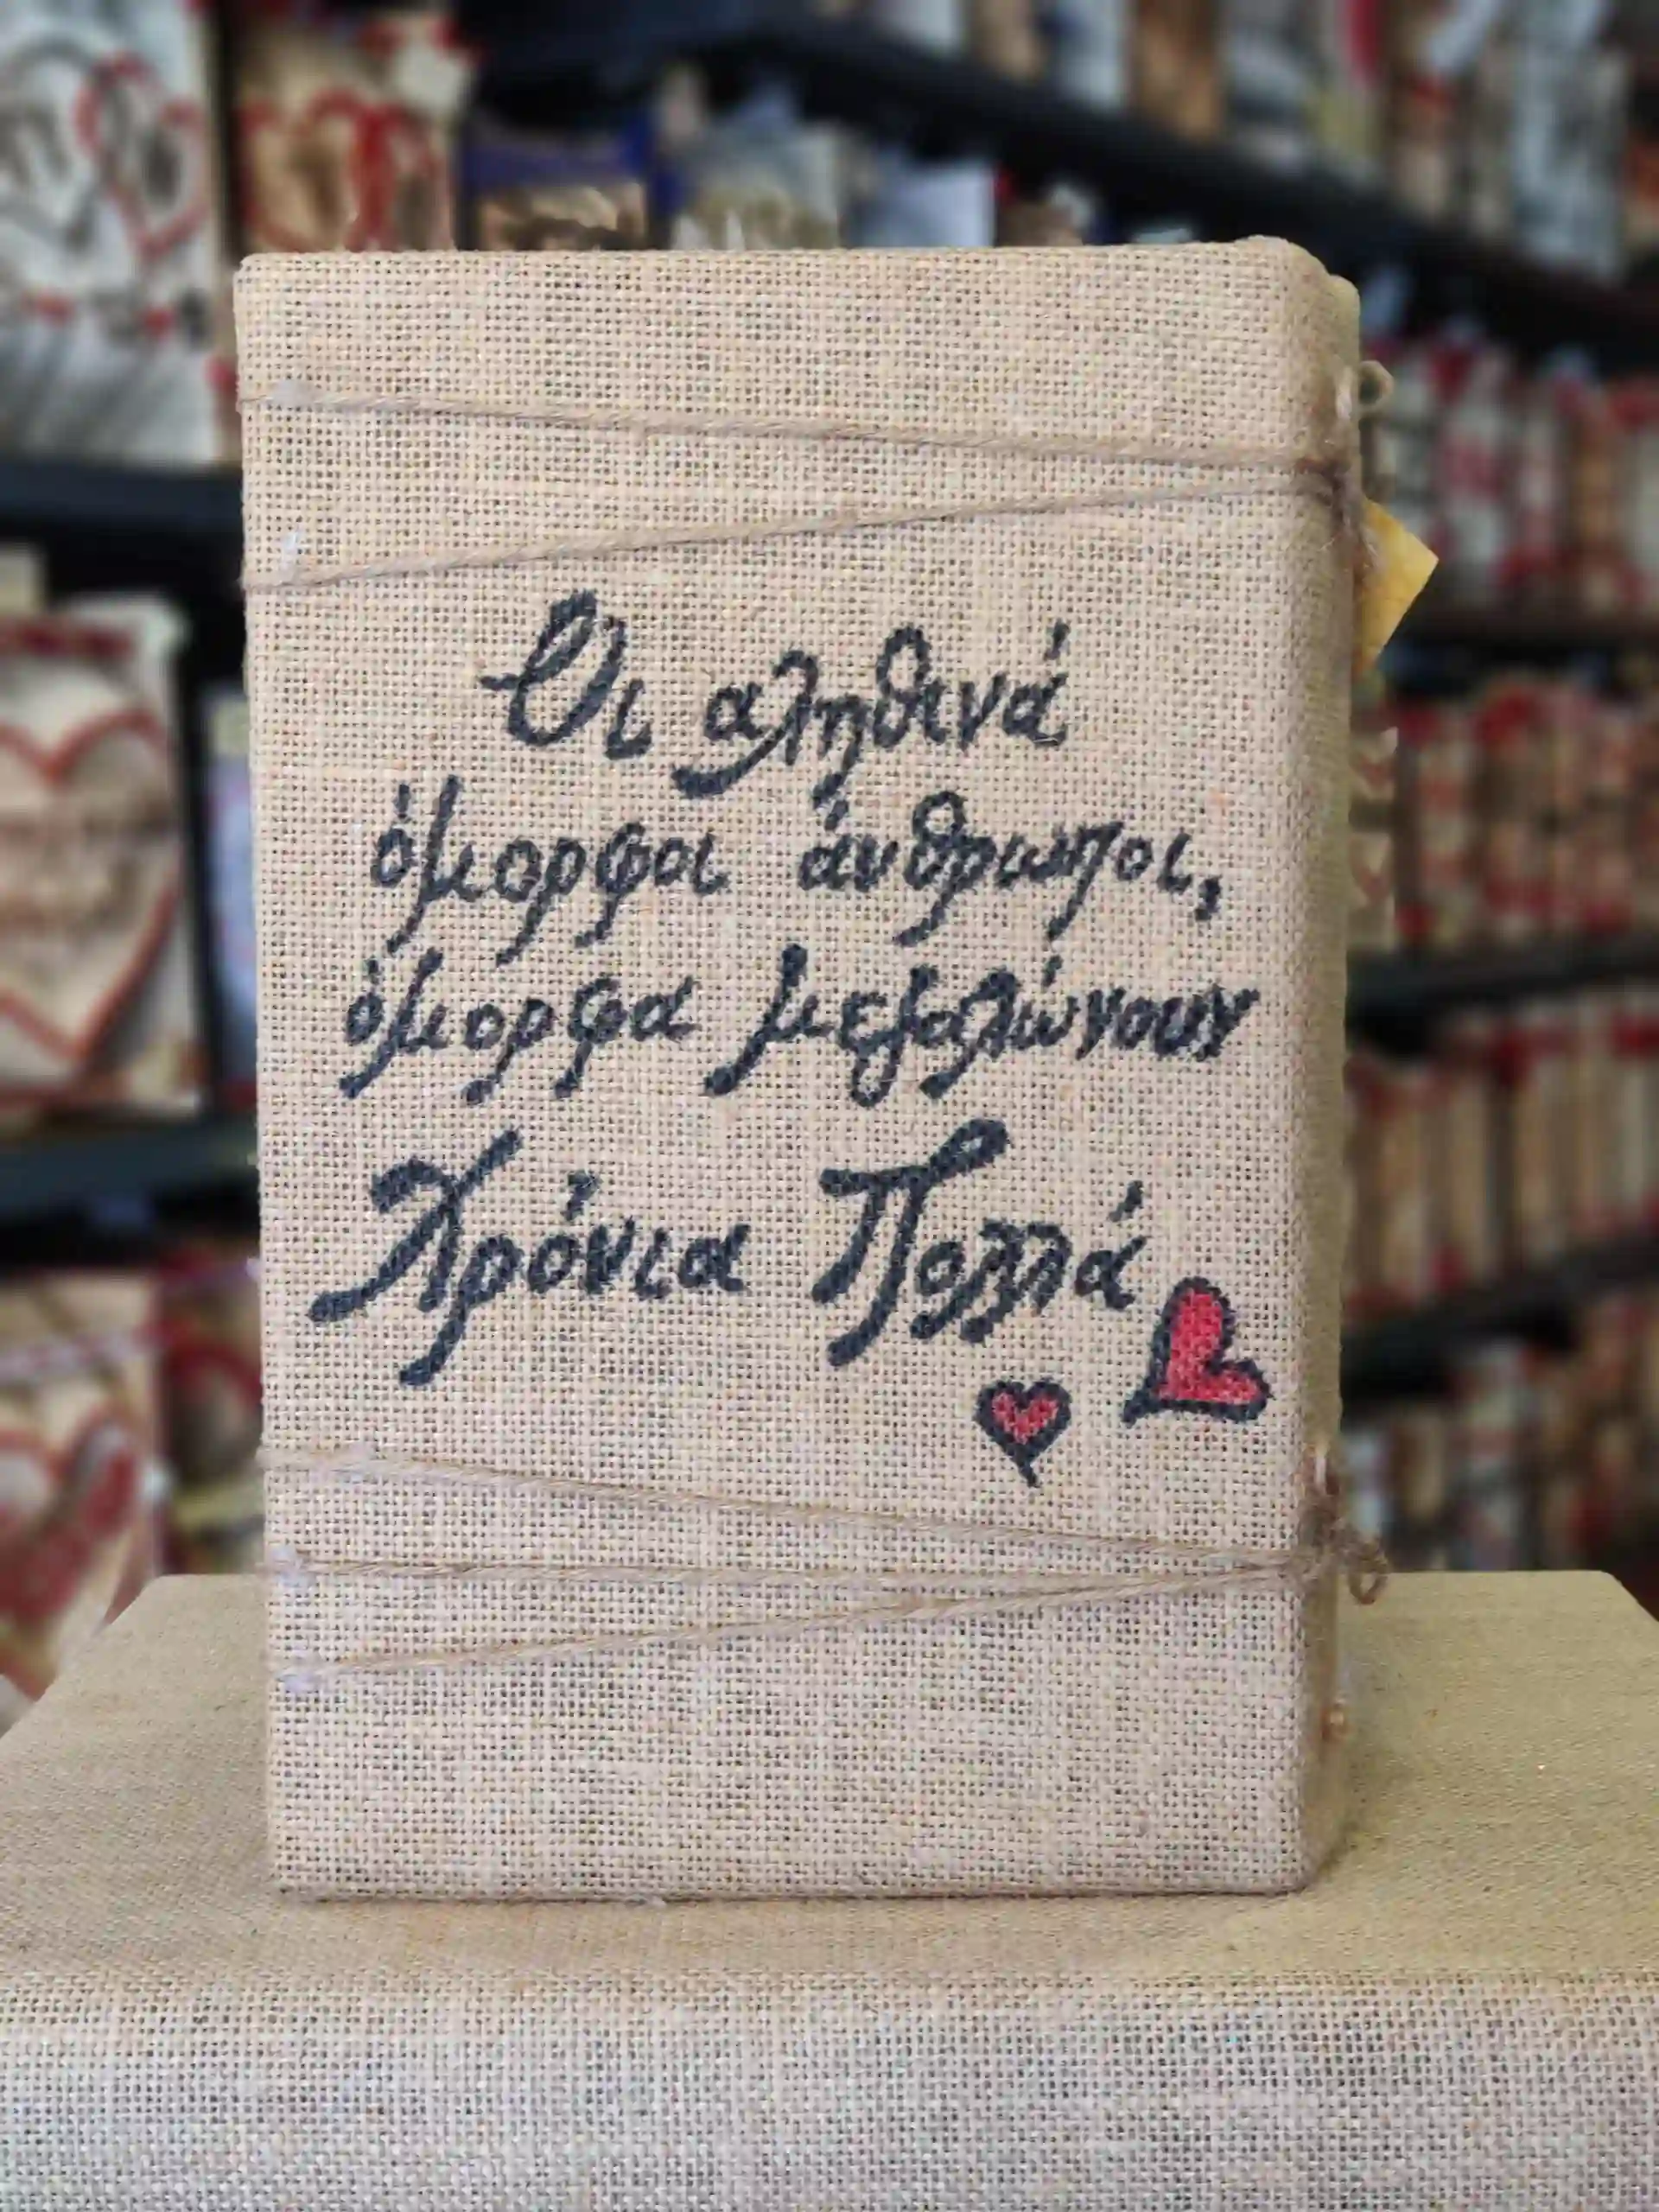 Οι αληθινά
όμορφοι άνθρωποι,
όμορφα μεγαλώνουν
Χρόνια Πολλά